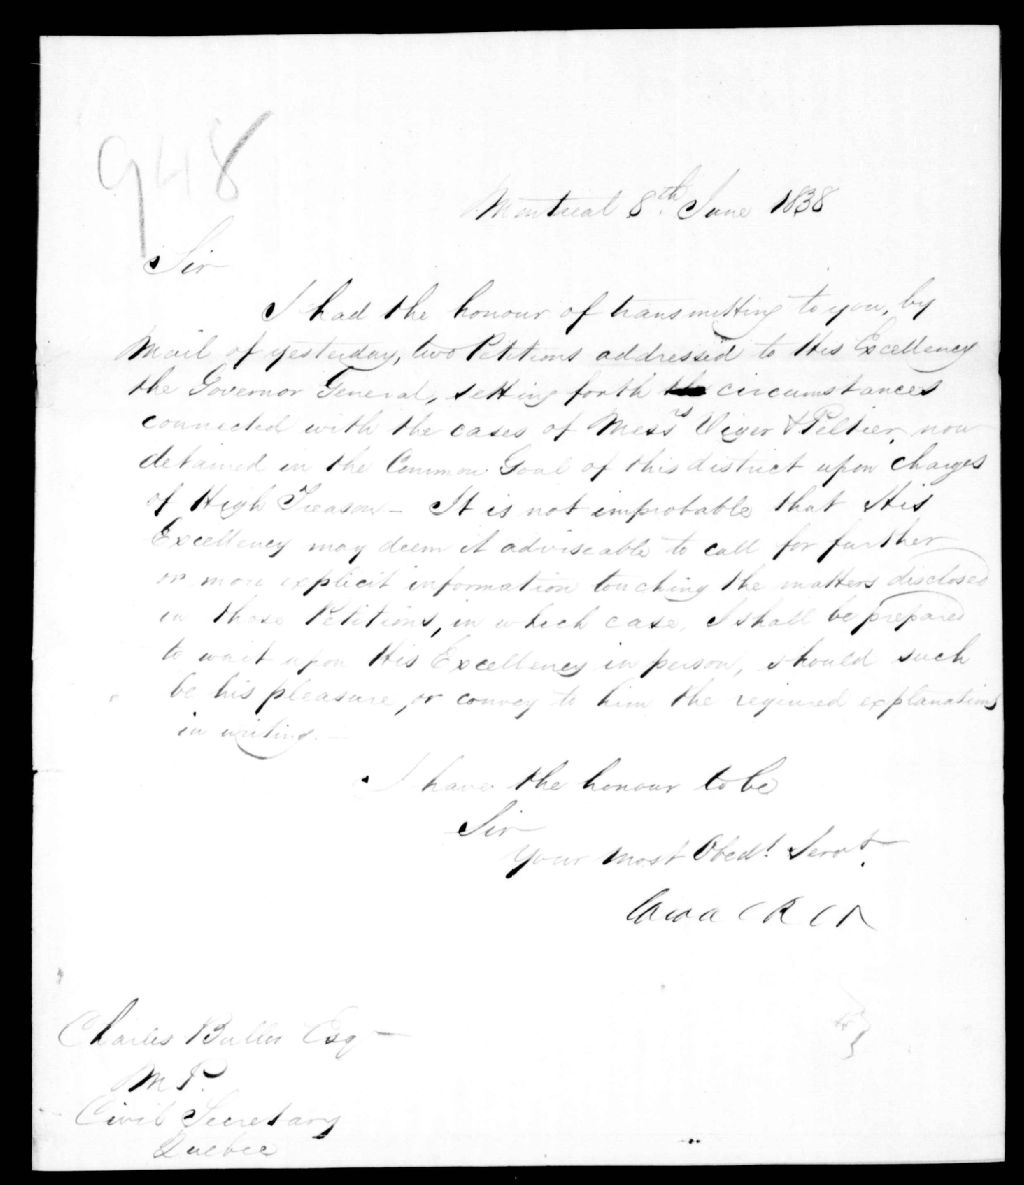 948
Montreal 8th. June 1838
Sir
I had the honour of transmitting to you, by
Mail of yesterday, two Petitions addressed to His Excellency
the Governor General, setting forth the circumstances
connected with the cases of Messrs Viger & Peltier, now
detained in the Common Goal of this district upon charges
of High Treason - It is not improbable that His
Excellency may deem it adviseable to call for further
or more explicit information touching the matters disclosed
in those Petitions, in which case, I shall be prepared
to wait upon His Excellency in person, should such
be his pleasure, or convey to him the required explanations
in writing. -
I have the honour to be
Sir
Your most Obedt. Servt.
Charles Buller Esq
M P.
Civil Secretary
Quebec